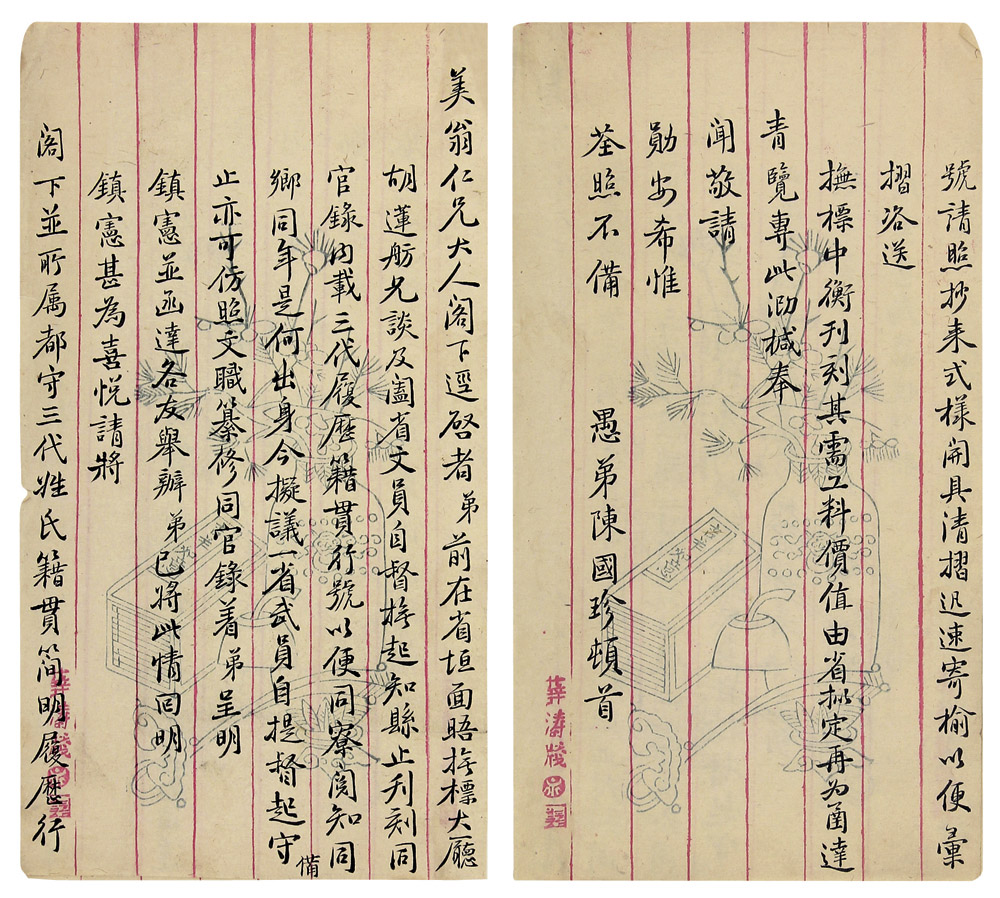 美翁仁兄大人閣下逕啓者弟前在省垣面晤撫標大廳
胡蓮舫兄談及闔省文員自督撫起知縣止刋刻同
官錄內載三代履歷籍貫行號以便同寮閱知同
鄉同年是何出身今擬議一省武員自提督起守備
止亦可仿照文職纂修同官錄着弟呈明
鎮憲並函達各友舉辦弟已將此情囬明
鎮憲甚為喜悅請將
閣下並所属都守三代姓氏籍貫简明履歷行
號請照抄来式樣開具清摺迅速寄榆以便彙
摺咨送
撫標中衡刋刻其需工料價值由省拟定再为函達
青覽專此泐椷奉
聞敬請
勛安希惟
荃照不備
愚弟陳國珍頓首